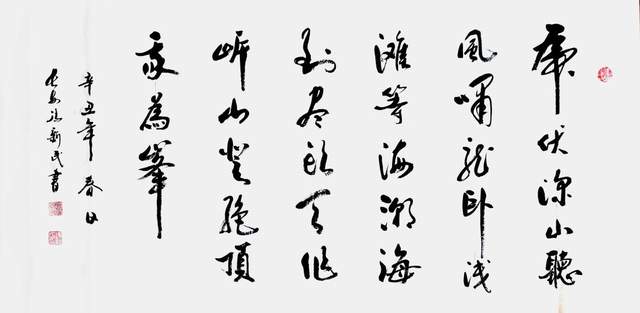 虎伏深山聽
風嘯龍卧淺
灘等海潮海
到盡頭天作
岸山登絕頂
我為峯
辛丑年春日
長安 新民書